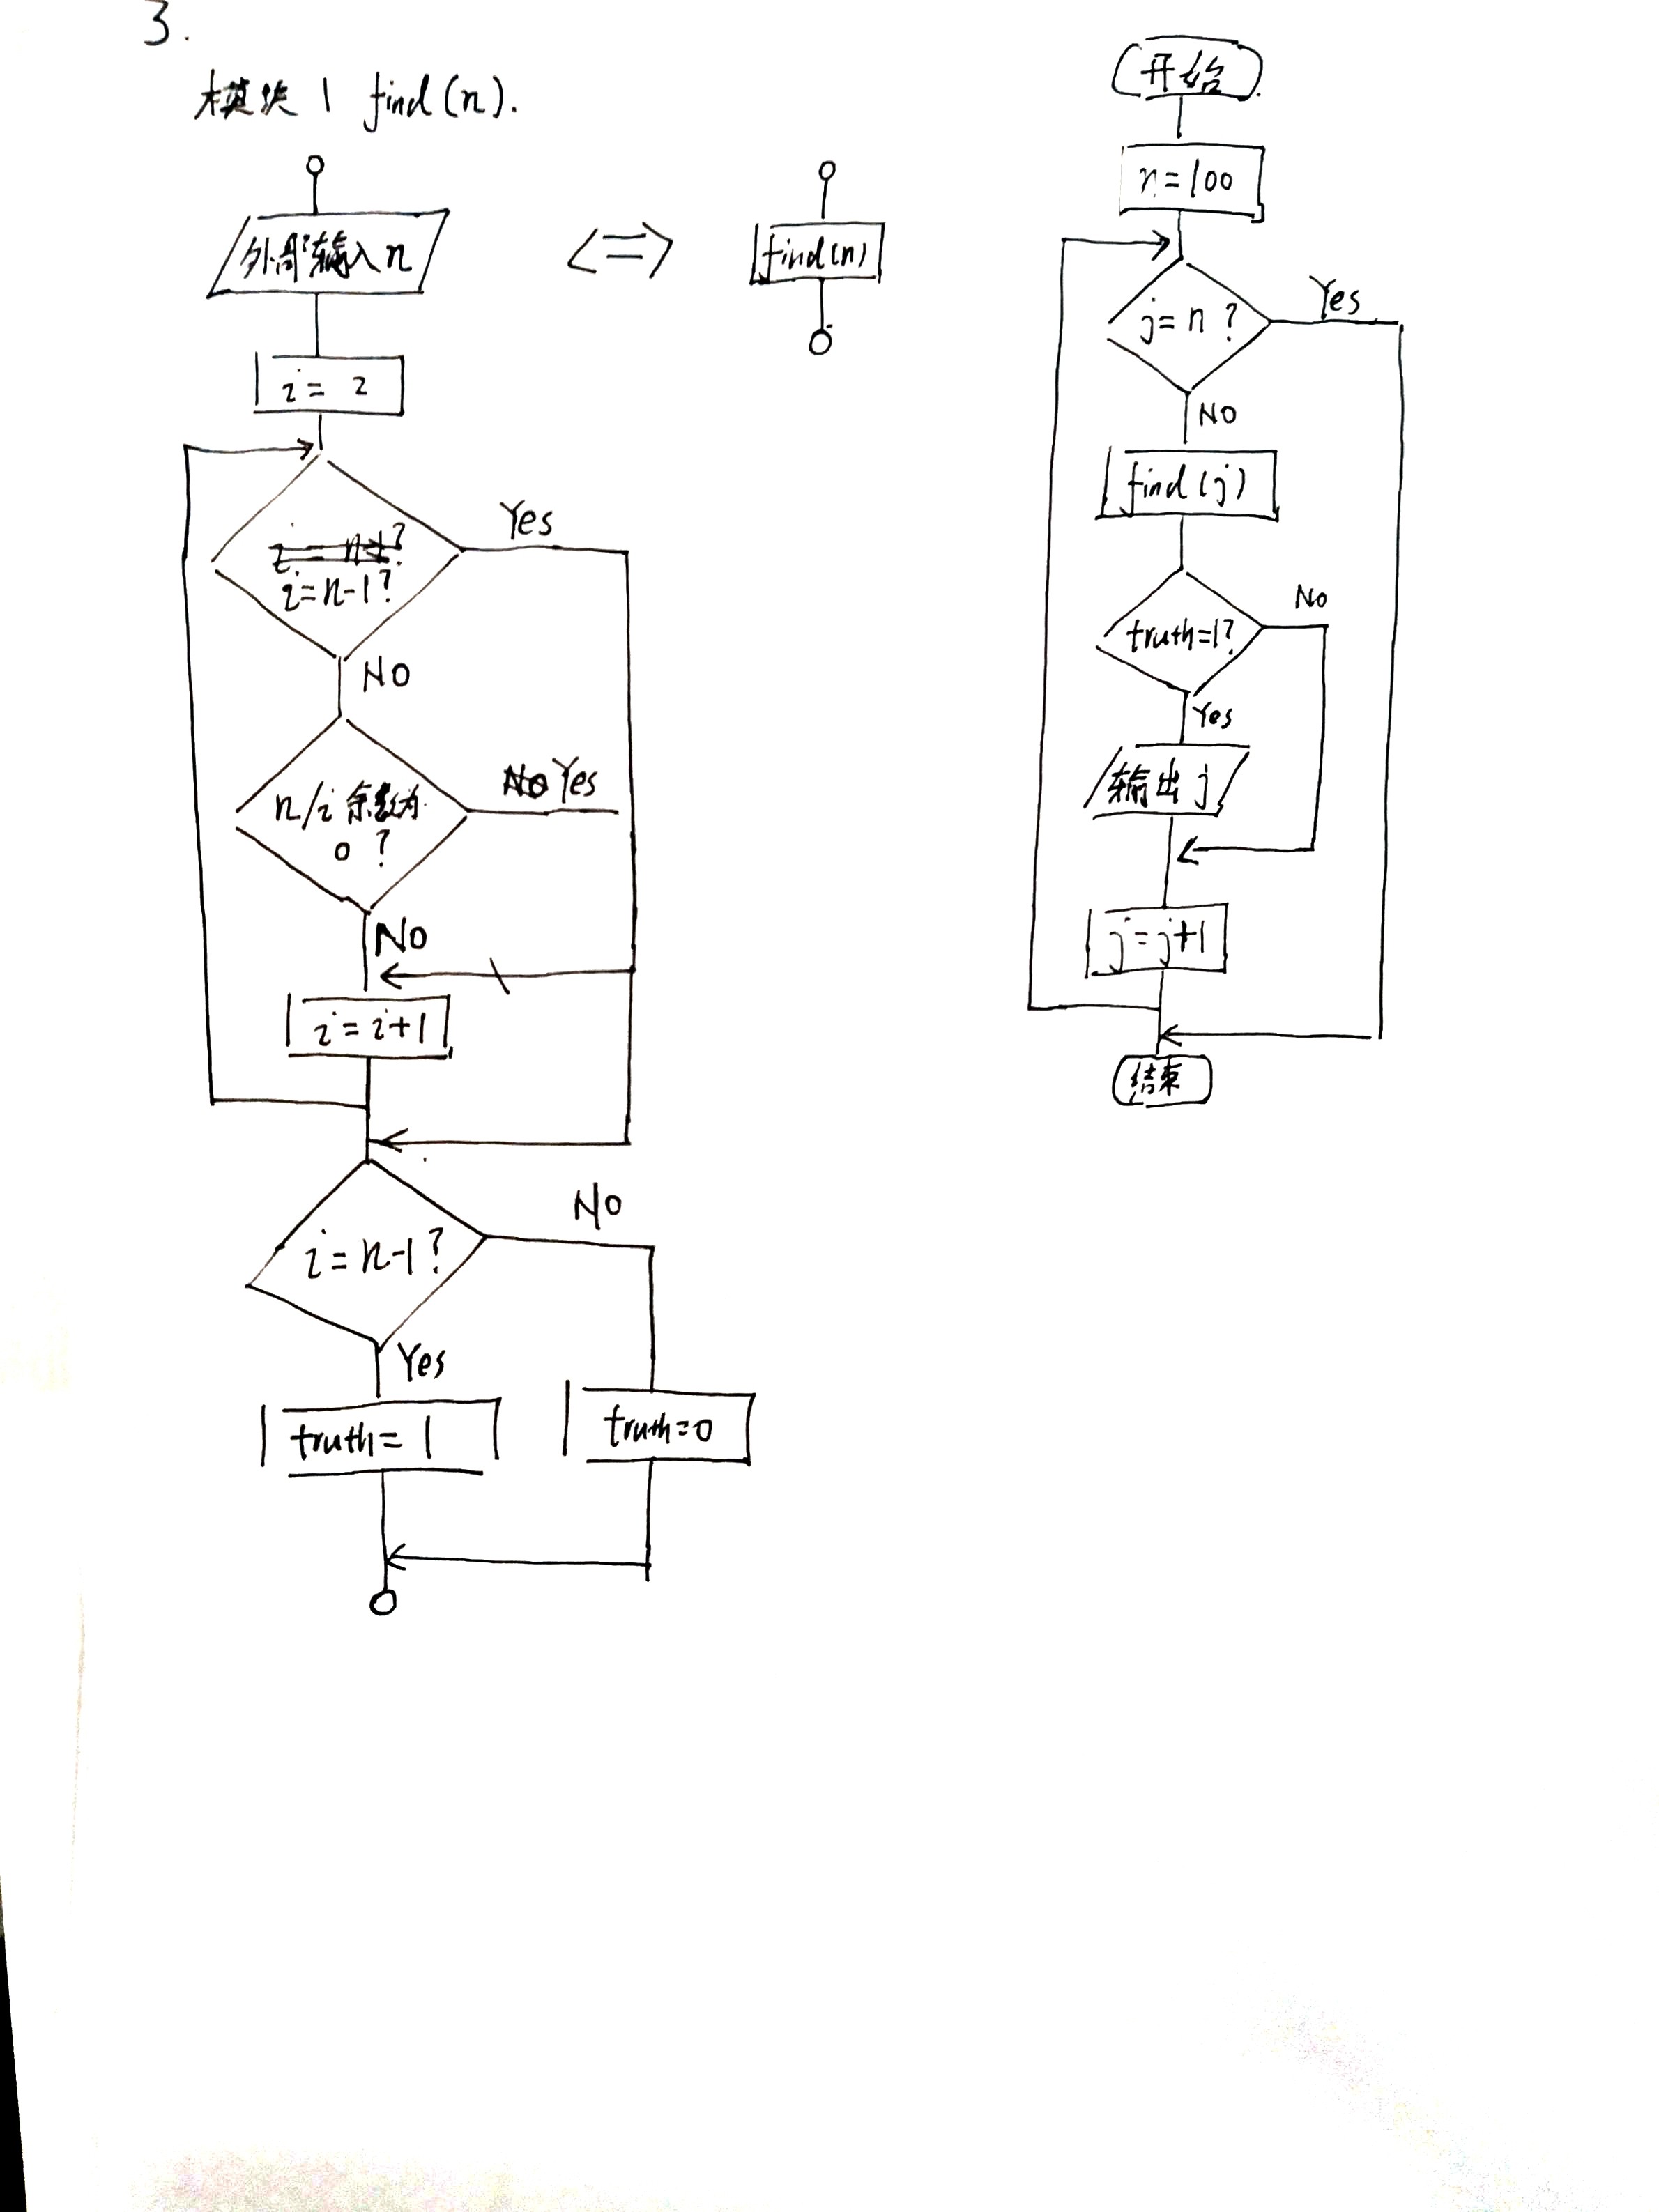 3.
模块1 find(n).
外部输入n
<=>
find(n)
i = 2
i=n-1?
Yes
NO
n/i 余数为
0 ?
Yes
No
i=i+1
i=n-1?
No
Yes
truth=1
truth=0
开始
n=100
j=n ?
Yes
NO
find(j)
truth=1?
No
Yes
输出j
j=j+1
结束